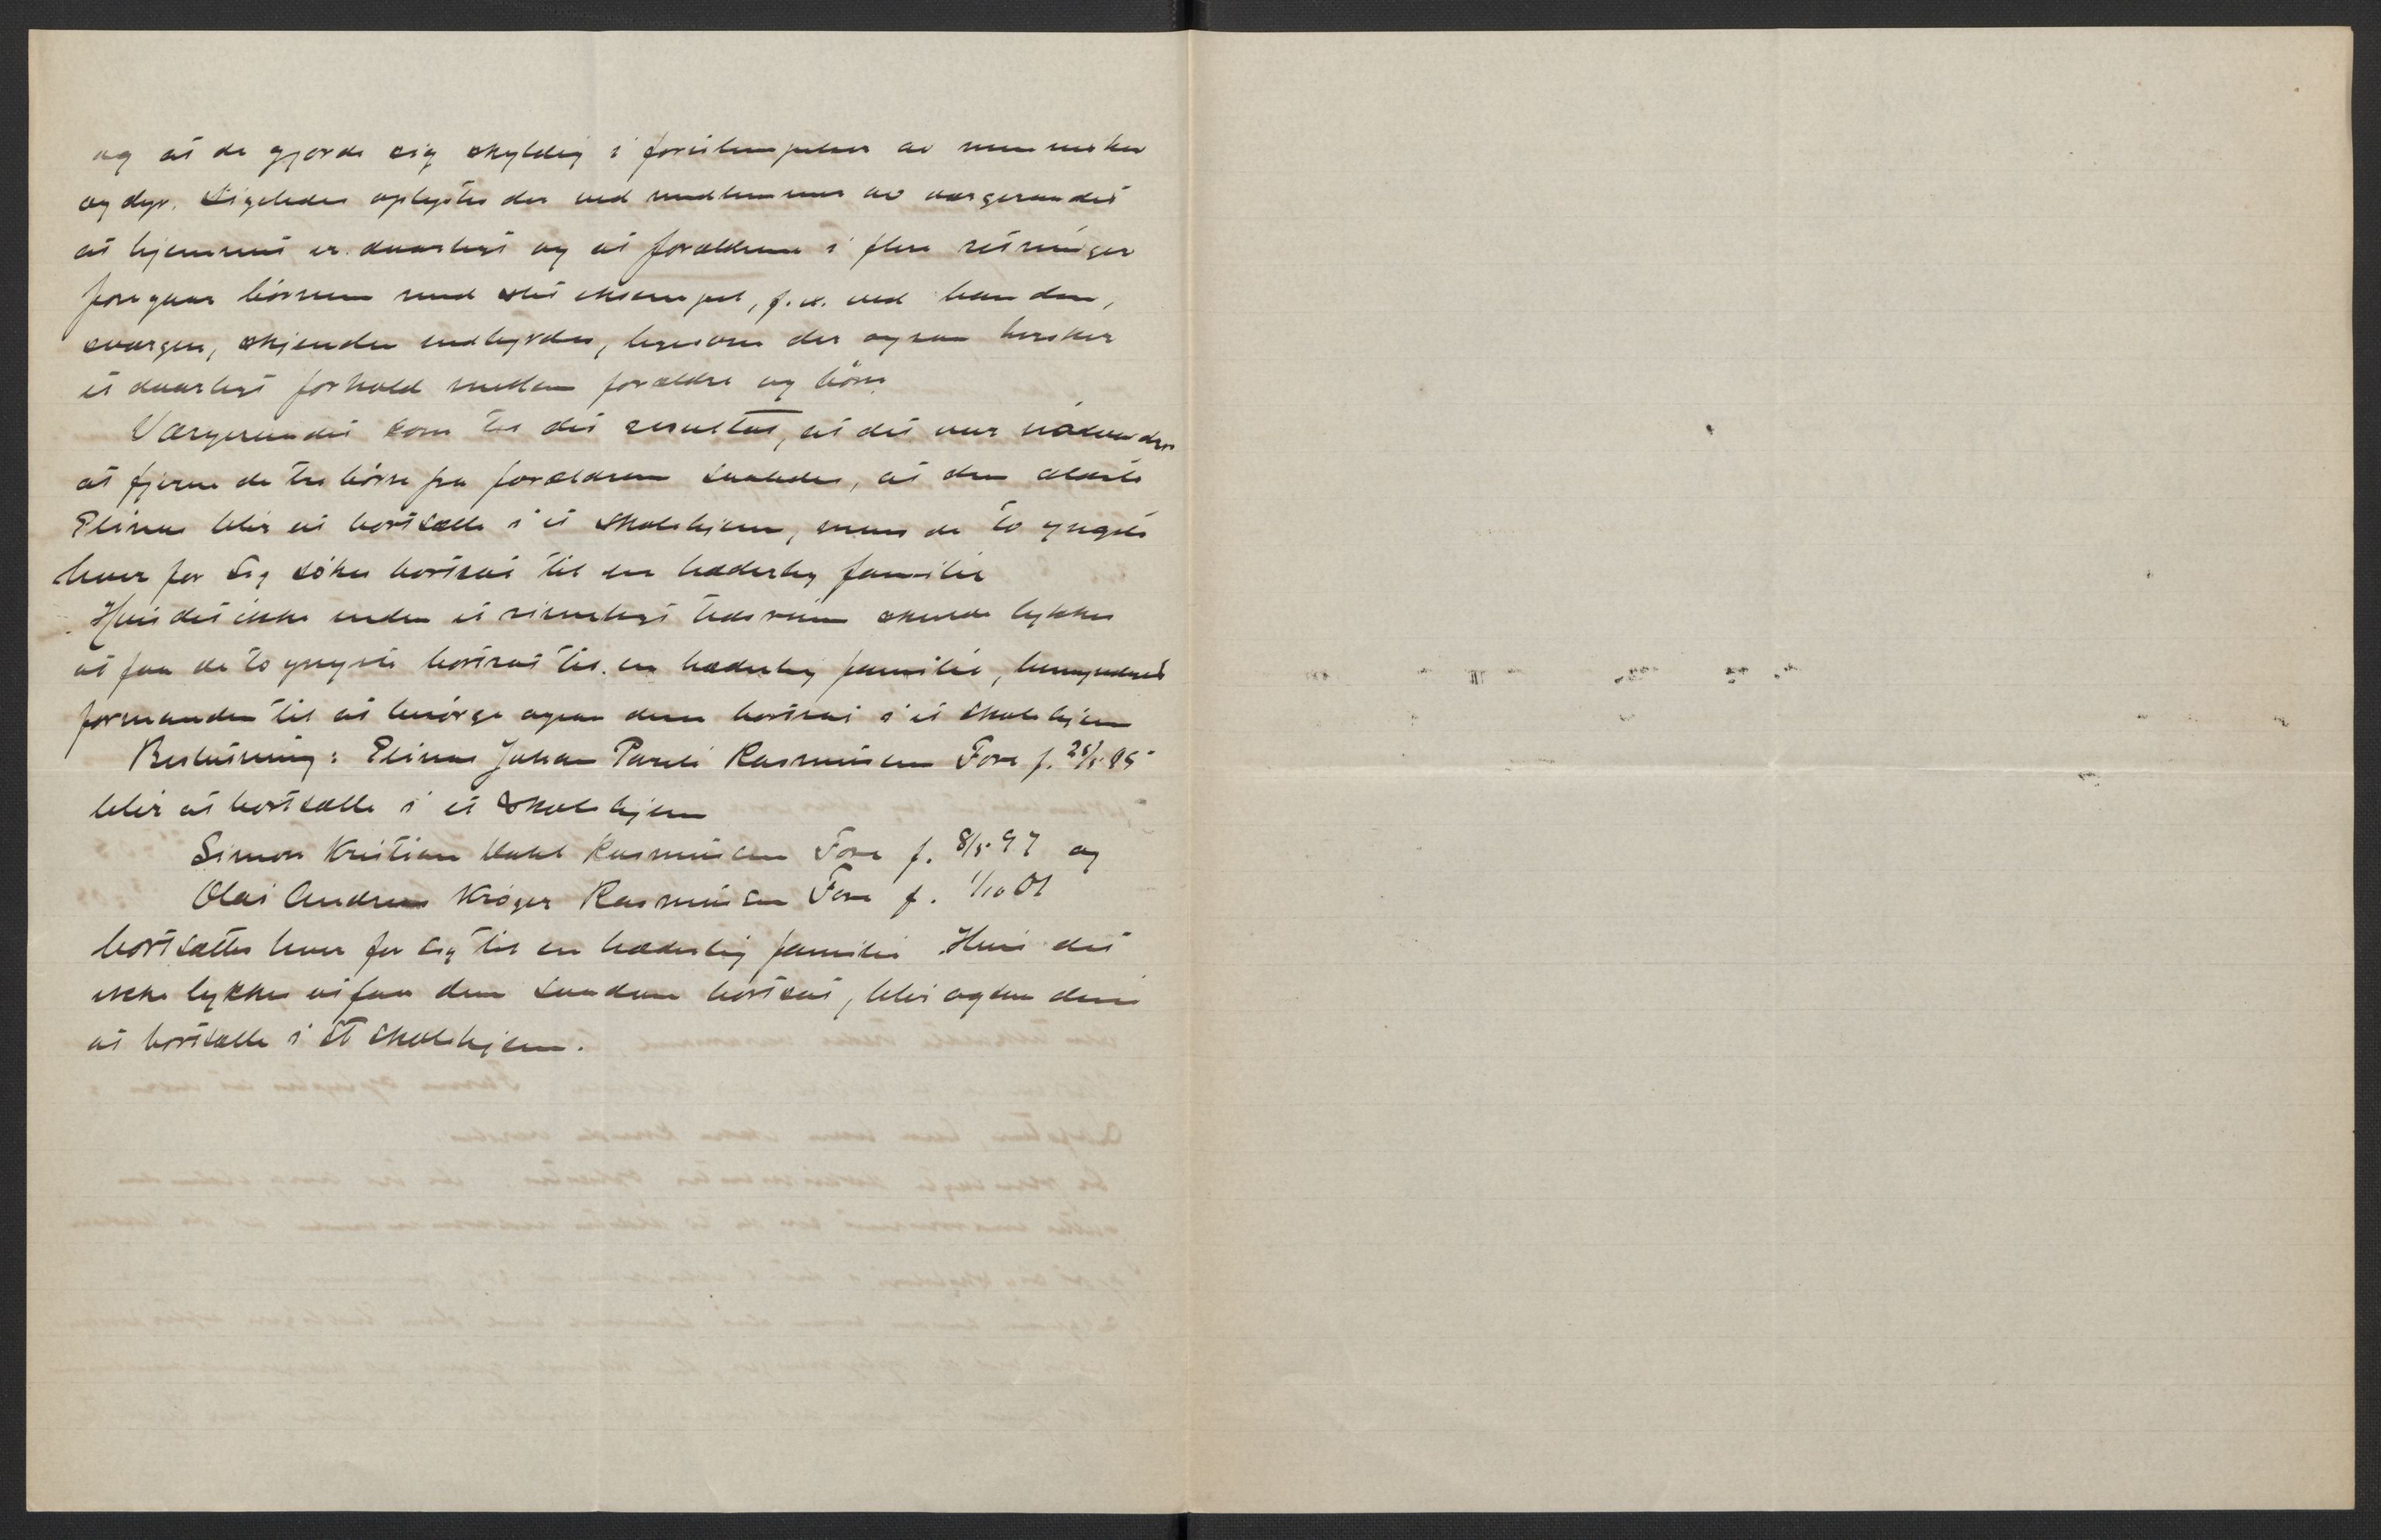 og at de gjorde sig skyldig i forulempelser av mennesker
og dyr. Ligeledes oplystes der ved medlemmer av vergeraadet
at hjemmet er daarligt og at forældrene i flere retninger
foregaar börnene med slet eksempel, f. x. ved banden,
sværgen, skjenden indbyrdes, ligesom der ogsaa hersker
et daarligt forhold mellem forældre og börn.
Værgeraadet kom til det resultat, at det var nödvendig
at fjerne de tre börn fra forældrene saaledes, at den ældste
Elinus blir at bortsætte i et skolehjem, mens de to yngste
hver for sig sökes bortsat til en hæderlig familie
Hvis det ikke inden et rimeligt tidsrum skulde lykkes
at faa de to yngste bortsat til en hæderlig familie, bemyndiges
formanden til at besörge ogsaa dem bortsat i et skolehjem
Beslutning: Elinus Johan Pareli Rasmussen Fore f. 25/5 95
blir at bortsætte i et skolehjem
Simon Kristian Rasmussen Fore f. 8/5 97 og
Olai Andreas Kröger Rasmussen Fore f. 1/10 01
bortsættes hver for sig til en hæderlig familie. Hvis det
ikke lykkes at faa dem saadan bortsat, blir ogsaa de
at bortsætte i et skolehjem.